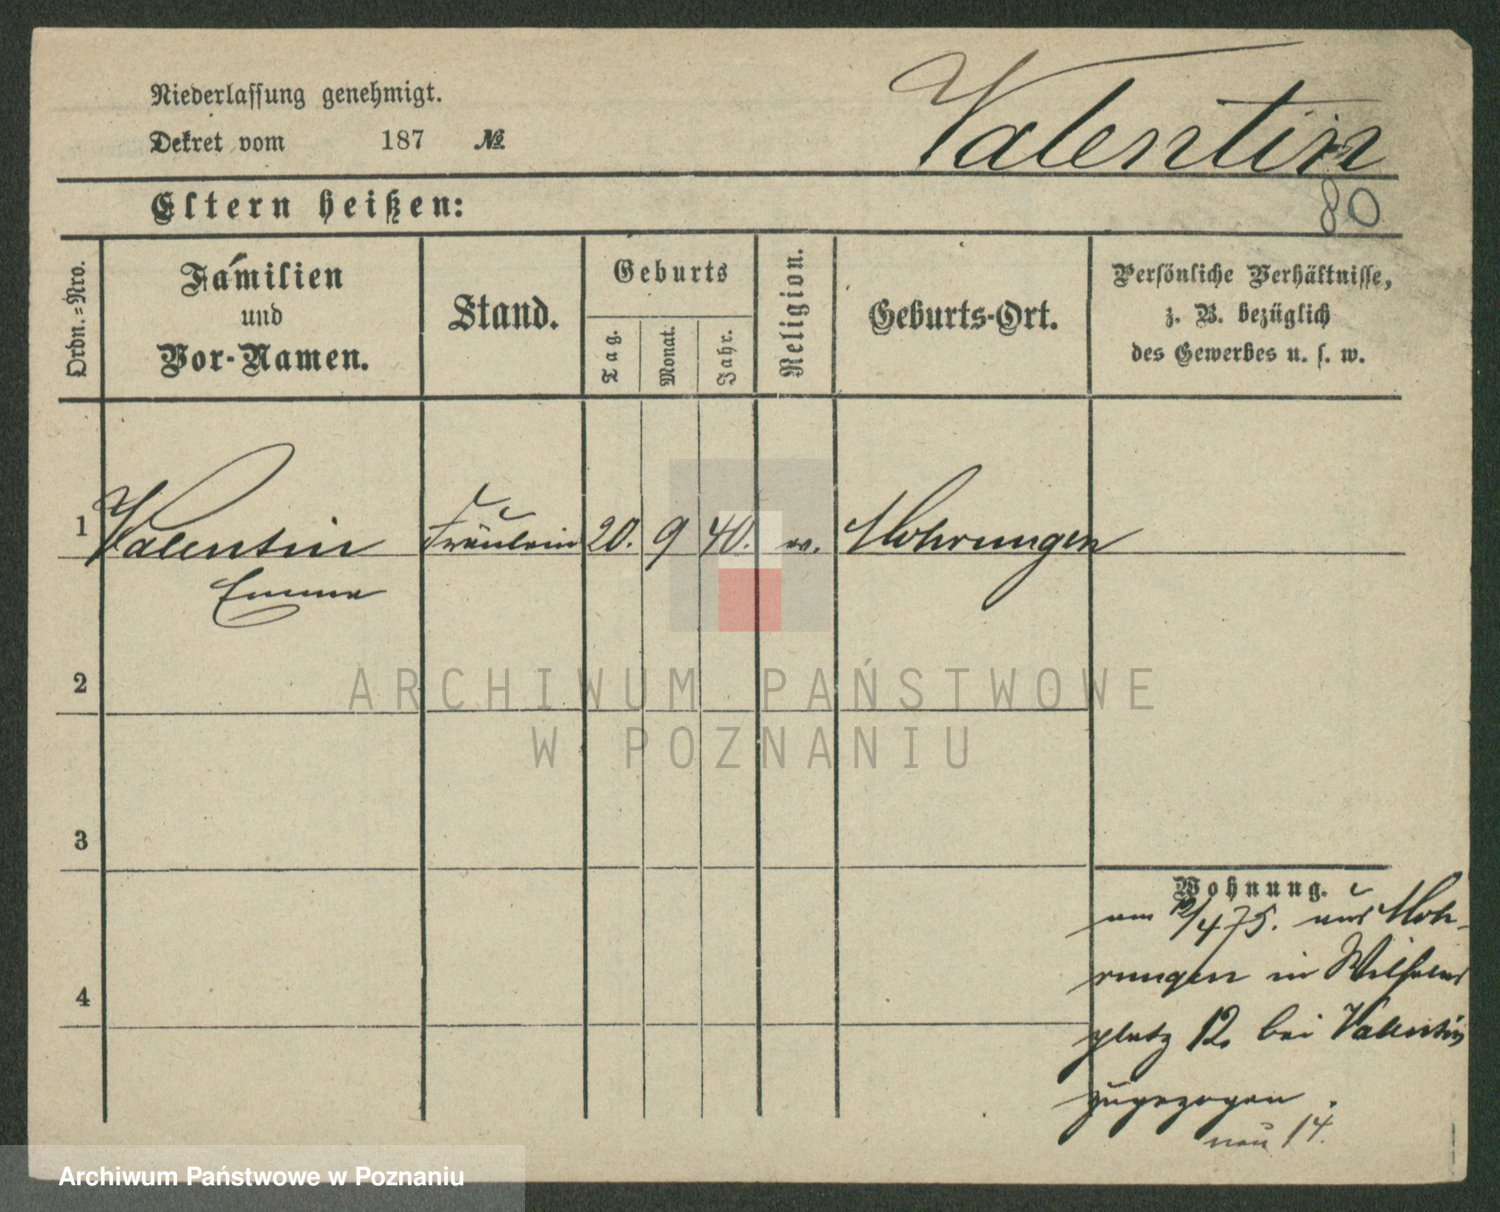 Niederlassung genehmigt.
Dekret vom 187 №
Valentin
80
Eltern heißen:
Ordn.=Nro.
Familien
und
Vor-Namen.
Stand.
Geburts
Tag.
Monat.
Jahr.
Religion.
Geburts-Ort.
Persönliche Verhältnisse,
z. B. bezüglich
des Gewerbes u. s. w.
1 Valentin Fräulein 20. 9 40. ev. Mohrungen
Emma
2
3
4
Wohnung.
am 12/4 75. aus Moh-
rungen in Wilhelms
platz 12. bei Valentin
zugezogen.
neu 14.
ARCHIWUM PAŃSTWOWE
W POZNANIU
Archiwum Państwowe w Poznaniu